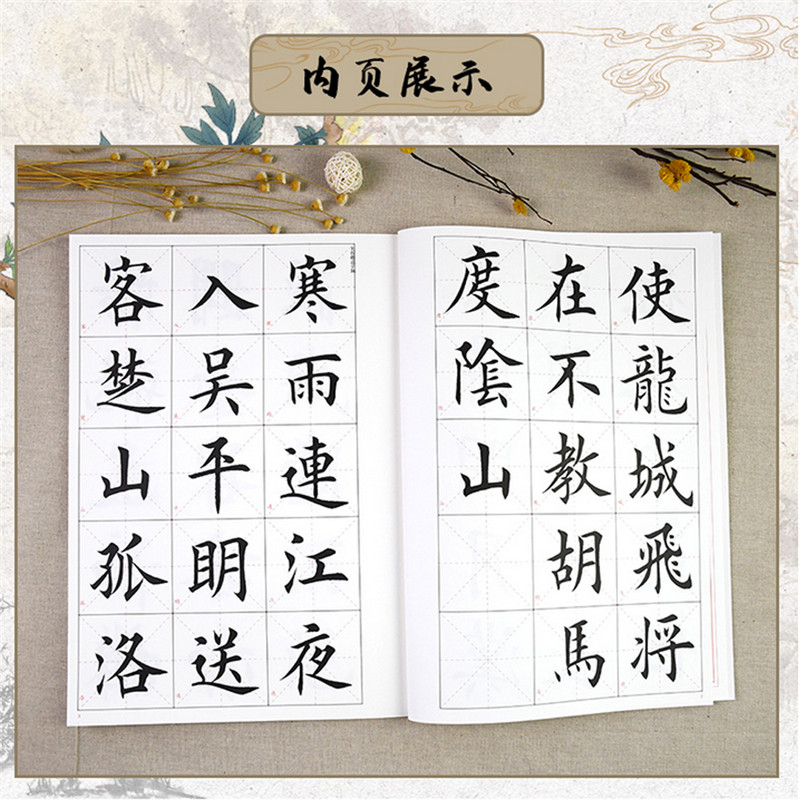 内页展示
使龍城飛将
在不教胡馬
度陰山
寒雨連江夜
入吴平明送
客楚山孤洛